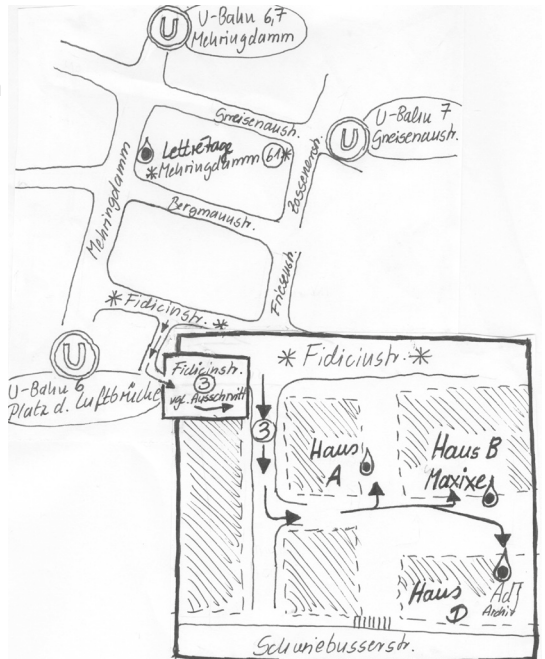 U
U-Bahn 6,7
Mehringdamm
Gneisenaustr.
U
U-Bahn 7
Gneisenaustr.
Lettretage
*Mehringdamm 61*
Mehringdamm
Zossenerstr.
Bergmannstr.
Friesenstr.
* Fidicinstr. *
U
U-Bahn 6
Platz d. Luftbrücke
Fidicinstr.
3
vgl. Ausschnitt
* Fidicinstr. *
3
Haus
A
Haus B
Maxixe
Haus
D
AdJ
Archiv
Schwiebusserstr.